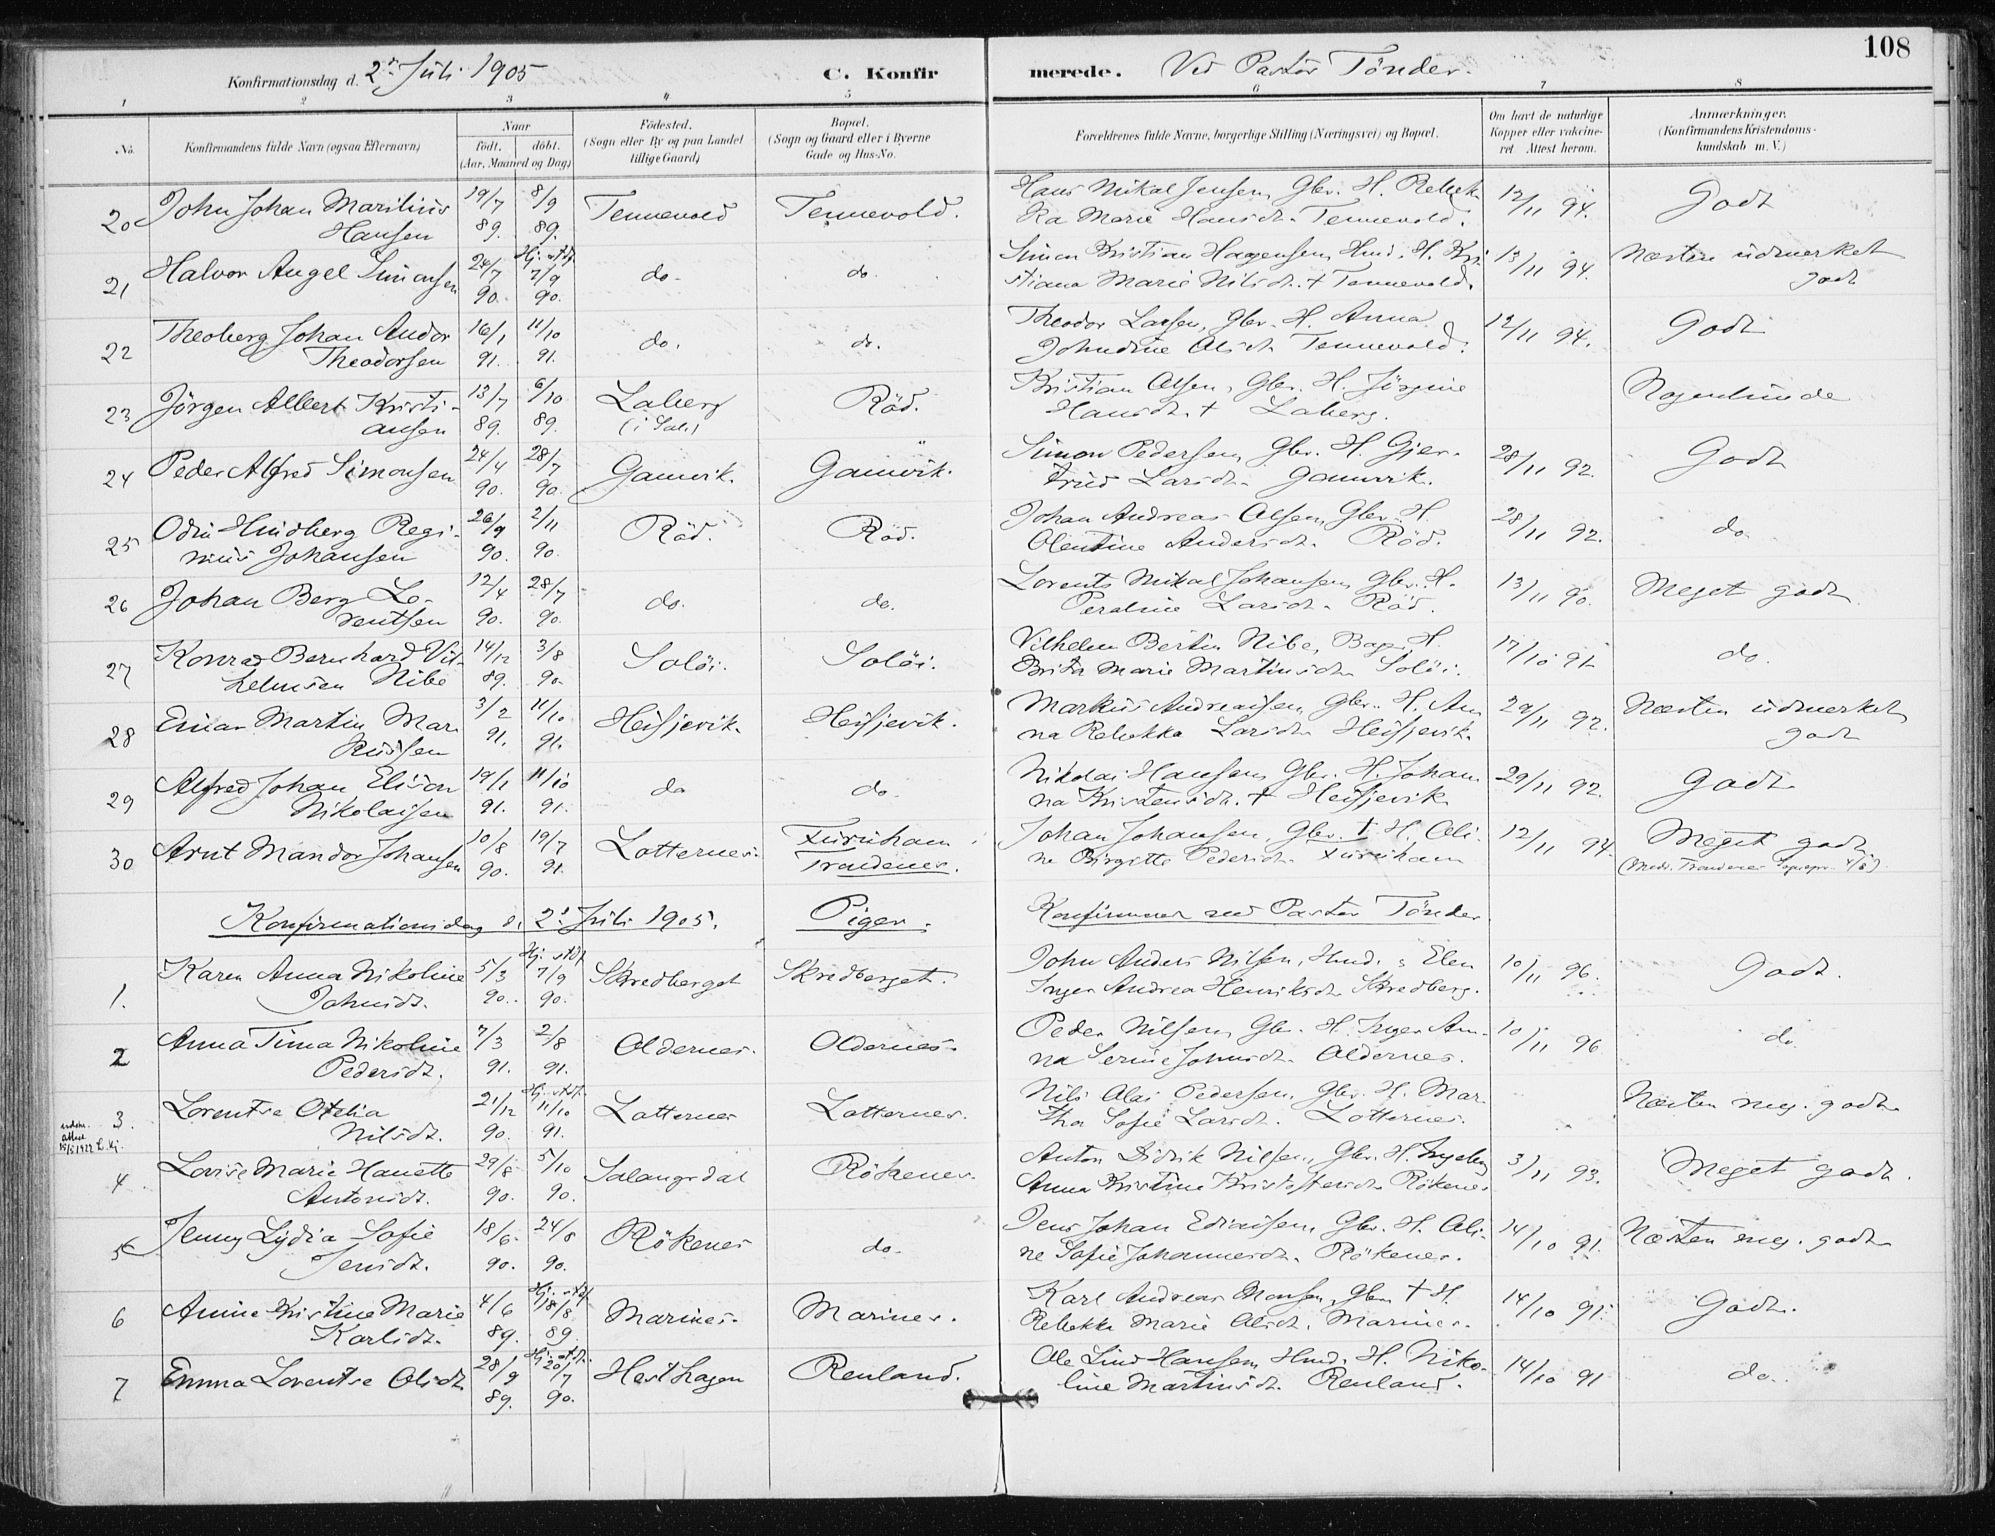 108
Konfirmationsdag d. 2den Juli 1905 C. Konfirmerede. Ved Pastor Tönder.
1 2 3 4 5 6 7 8
No. Konfirmandens fulde Navn (ogsaa Efternavn) Naar födt. döbt. (Aar, Maaned og Dag) Födested. (Sogn eller By og paa Landet tillige Gaard) Bopæl. (Sogn og Gaard eller i Byerne Gade og Hus-No. Forældrenes fulde Navne, borgerlige Stilling (Næringsvei) og Bopæl. Om havt de naturlige Kopper eller vaccineret Attest herom. Anmærkninger. (Konfirmandens Kristendomskundskab m. V.)
20 John Johan Marilius 19/7 8/9 Tennevold Tennevold. Hans Mikal Jensen, Gbr. H. Rebek 12/11 94. Godt
Hansen 89. 89. ka Marie Hansdt. Tennevold.
21 Halvor Angel Simonsen 24/7 Hj. stdf. 7/9 do. do. Simon Kristian Hagensen, Hmd. H. Kri- 13/11 94. Næsten udmerket
90. 90. stiana Marie Nilsdt. † Tennevold. godt
22 Theoberg Johan Andor 16/1 11/10 do. do. Theodor Larsen, Gbr. H. Anna 12/11 94. Godt
Theodorsen 91. 91. Johndine Olsdt. Tennevold.
23 Jörgen Albert Kristi- 13/7 6/10 Laberg Röd. Kristian Olsen, Gbr. H. Jörgine Nogenlunde
ansen 89. 89. (i Sal.) Hansdt. † Laberg.
24 Peder Alfred Simonsen 24/4 28/7 Gamvik. Gamvik. Simon Pedersen, Gbr. H. Gjer- 28/11 92. Godt
90. 90. trud Larsdt. Gamvik.
25 Odin Hindberg Regi- 26/9 2/11 Röd. Röd. Johan Andreas Olsen, Gbr. H. 28/11 92. do.
nius Johansen 90. 90. Olentine Andersdt. Röd.
26 Johan Berg Lo- 12/4 28/7 do. do. Lorents Mikal Johansen, Gbr. H. 13/11 90. Meget godt
rentsen 90. 90. Peroline Larsdt. Röd.
27 Konrad Bernhard Vil- 14/12 3/8 Solöi. Solöi. Vilhelm Bertin Nibe, H. 17/10 91 do.
helmsen Nibe 89. 90. Brita Marie Martinsdt. Solöi.
28 Einar Martin Mar 3/2 11/10 Heisjevik. Heisjevik. Markus Andreassen, Gbr. H. An 29/11 92. Næsten udmerket
kussen 91. 91. na Rebekka Larsdt. Heisjevik. godt
29 Alfred Johan Elison 19/1 11/10 do do. Nikolai Hansen, Gbr. H. Johan 29/11 92. Godt
Nikolaisen 91. 91. na Kristensdt. † Heisjevik
30 Arnt Mandor Johansen 10/8 19/7 Lotternes. Furuham Johan Johansen, Gbr. † H. Oli- 12/11 94. Meget godt
90. 91. Trondenes. ne Birgitte Pedersdt. Furuham (Medd. Trondenes Sognepr.
Konfirmationsdag d. 2den Juli 1905. Piger. Konfirmeret ved Pastor Tönder
1. Karen Anna Nikoline 5/3 Hj. stdf. 7/9 Skredberget Skredberget. John Anders Nilsen, Hmd. Elen 10/11 96. Godt.
Johnsdt. 90. 90. Inger Andrea Henriksdt. Skredberg.
2 Anna Tima Nikoline 7/3 2/8 Oldernes. Oldernes. Peder Nilsen, Gbr. H. Inger An- 10/11 96 do.
Pedersdt. 91. 91. na Serine Johnsdt. Oldernes.
3. Lorentse Otelia 21/12 Hj. stdf. 11/10 Lotternes Lotternes. Nils Olai Pedersen, Gbr. H. Mar- Næsten meg. godt
Nilsdt. 90. 91. tha Sofie Larsdt. Lotternes.
4 Lovise Marie Hanette 29/8 5/10 Salangsdal Rökenes. Anton Didrik Nilsen, Gbr. H. Ingeborg 3/11 93. Meget godt.
Antonsdt. 90. 90. Anna Kristine Kristoffersdt. Rökenes
5 Jenny Lydia Sofie 18/6. 24/8 Rökenes do. Jens Johan Ediassen, Gbr. H. Oli- 14/10 91. Næsten meg. godt
Jensdt. 90. 90. ne Sofie Johannesdt. Rökenes.
6 Amine Kristine Marie 4/6 Hj. stdf. 18/8 Marines. Marines. Karl Andreas Monsen, Gbr. † H. 14/10 91. Godt.
Karlsdt. 89. 89. Rebekka Marie Olsdt. Marines.
7 Emma Lorentse Olsdt. 28/9 Hj. stdf. 20/7 Hesthagen Renland. Ole Lind Hansen, Hmd. H. Niko- 14/10 91 do.
89. 90. line Martinsdt. Renland.